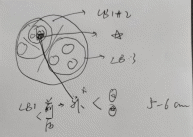 LB1+2
☆
LB3
LB1 前 → 外 < 5-6 cm